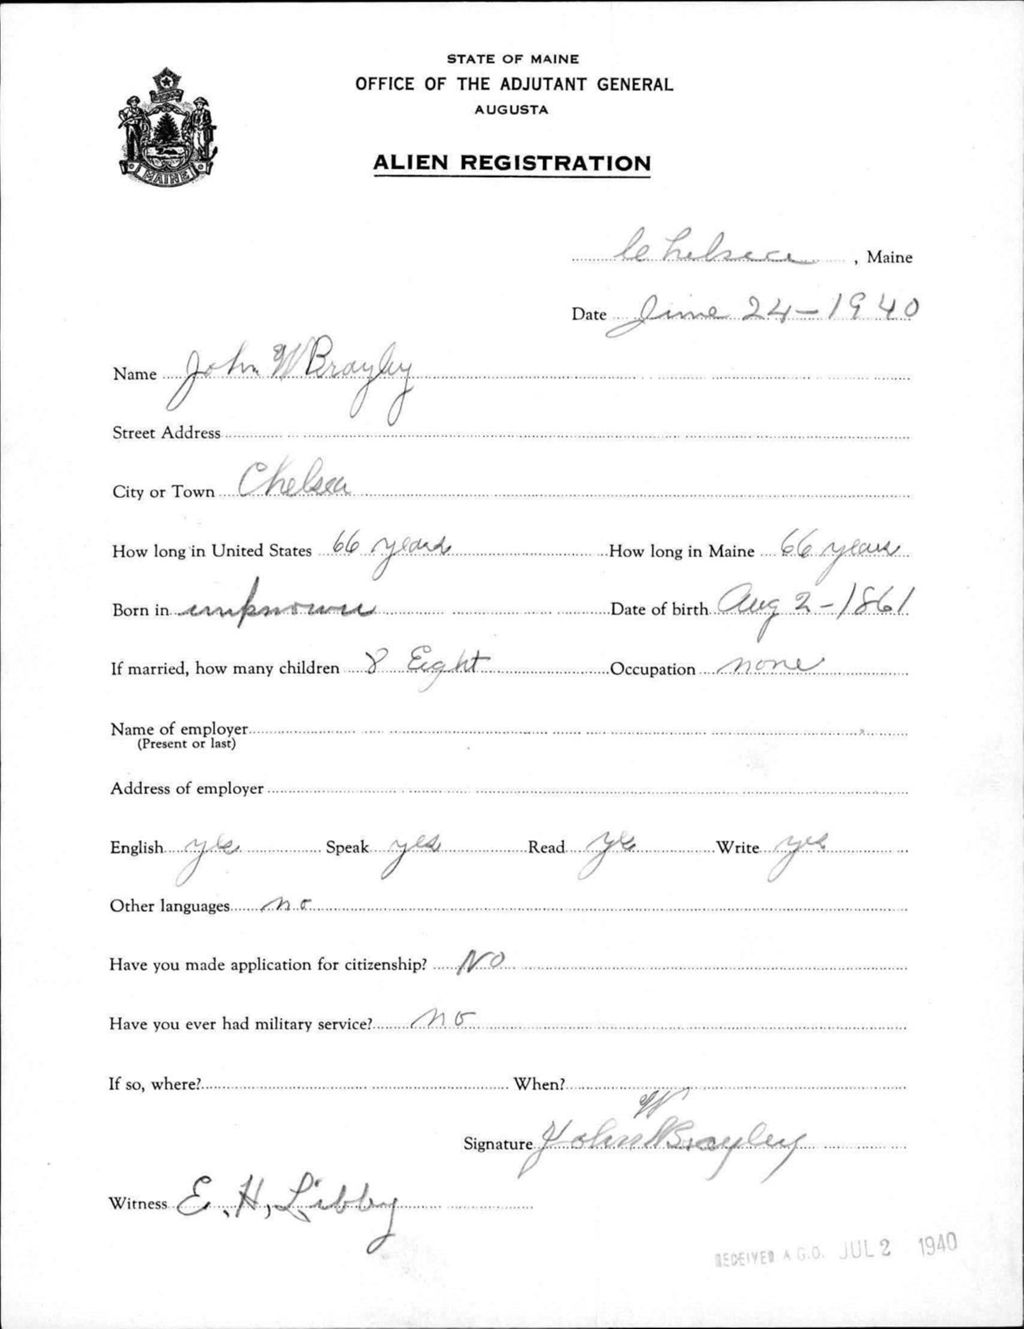 STATE OF MAINE
OFFICE OF THE ADJUTANT GENERAL
AUGUSTA
MAINE
ALIEN REGISTRATION
Chelsea, Maine
Date June 24-1940
Name John W Brayley
Street Address
City or Town Chelsea
How long in United States 66 years How long in Maine 66 years
Born in unknown Date of birth Aug 2-1861
If married, how many children 8 Eight Occupation none
Name of employer
(Present or last)
Address of employer
English yes Speak yes Read yes Write yes
Other languages no
Have you made application for citizenship? NO
Have you ever had military service? no
If so, where? When?
W
Signature John W Brayley
Witness E. H, Libby
RECEIVED A.G.O. JUL 2 1940